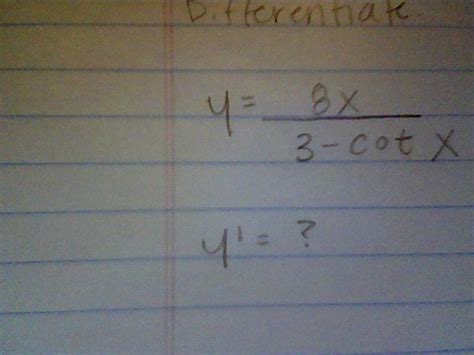 Differentiate.
y = 8x / 3 - cot x
y' = ?